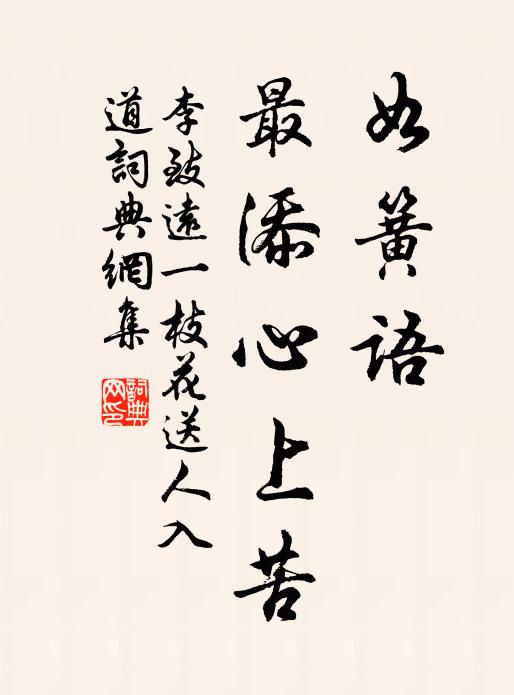 如簧語
最添心上苦
李致遠一枝花送人入
道詞典網集
詞典
网印